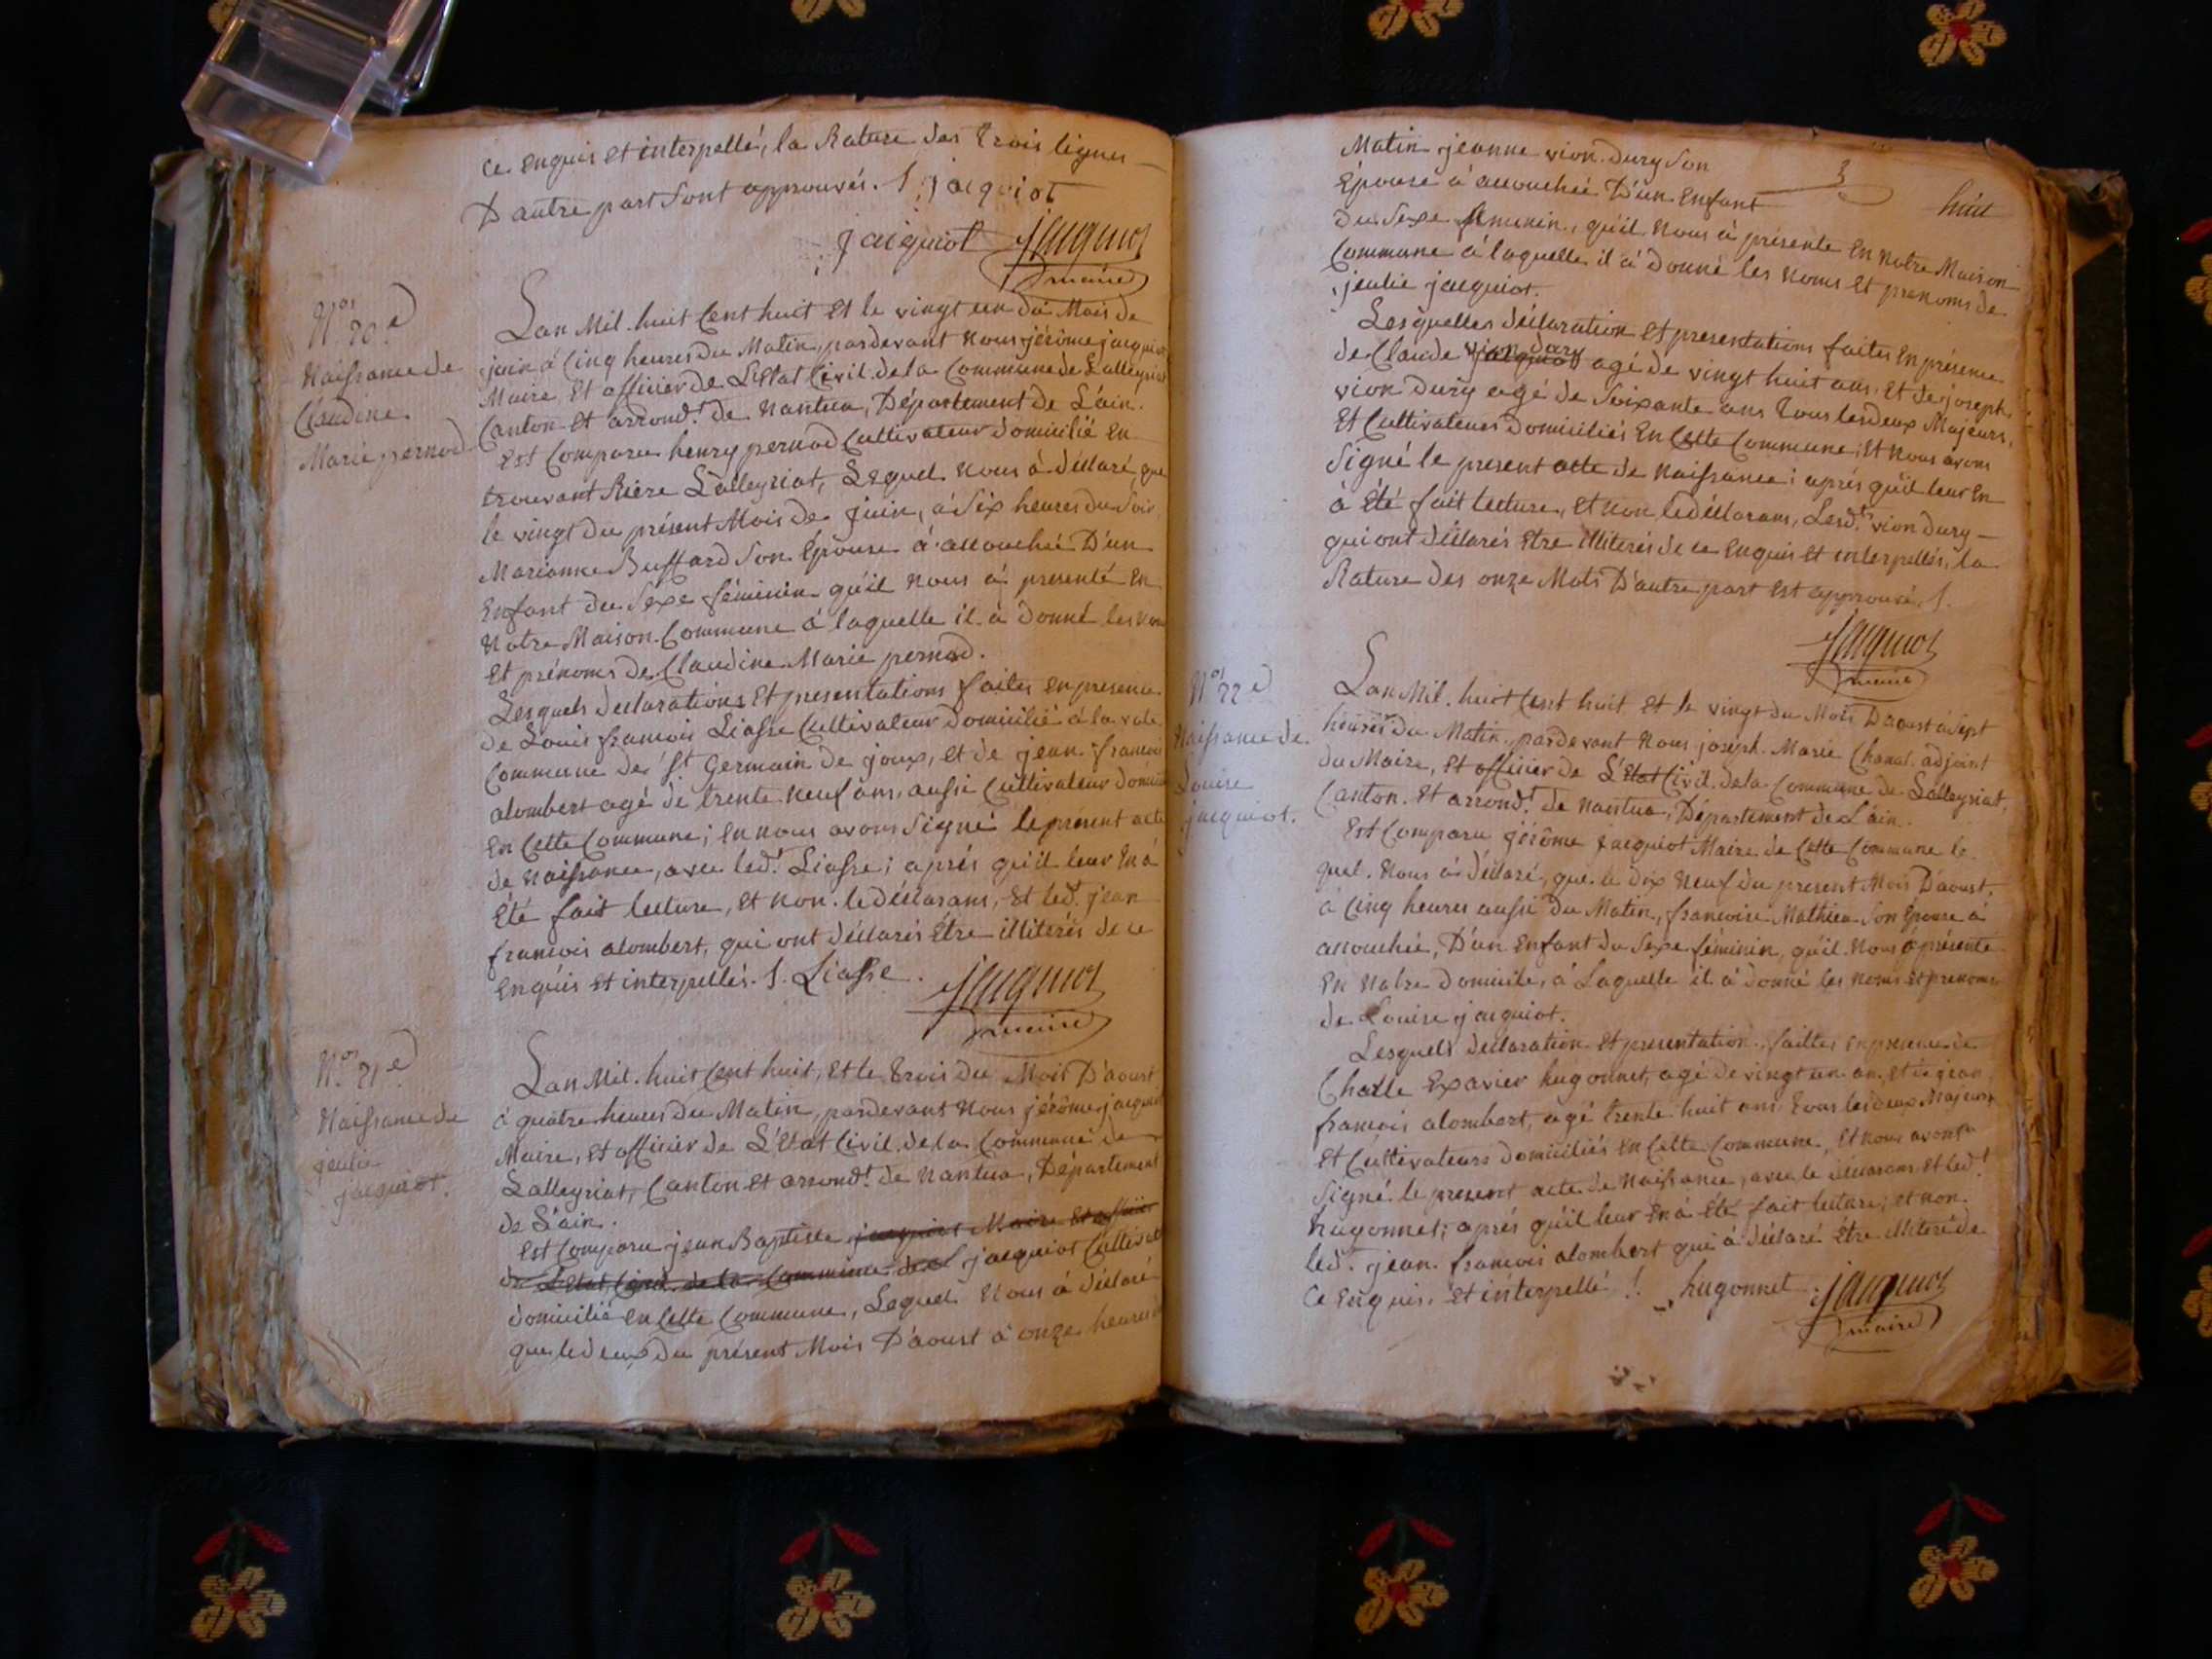 ce enquis et interpellé, la Rature des trois lignes
D'autre part Sont approuvés. /. jacquiot
jaiquiot jacquiot
maire
Nos 20.e
Naissance de
Claudine
Marie pernod
Lan Mil. huit Cent huit et le vingt un du Mois de
juin à Cinq heures du Matin, pardevant nous jérôme jacquiot
Maire, Et officier de L'Etat Civil de la Commune de Lalleyriat
Canton Et arrond.t de Nantua, Département de L'ain.
Est Comparu henry pernod Cultivateur domicilié En
trouvant Riere Lalleyriat, Lequel nous à déclaré, que
le vingt du présent Mois de juin, à Six heures du Soir
Marianne Buffard Son Épouse à accouchée D'un
Enfant du Sexe féminin qu'il nous à presenté En
Notre Maison Commune à laquelle il à donné les Noms
Et prénoms de Claudine Marie pernod.
Lesquels declarations Et presentations faites en presence
de Louis francois Liasse Cultivateur domicilié à la
Commune de St Germain de joux, et de jean francois
alombert agé de trente neuf ans, aussi Cultivateur domicilié
En Cette Commune; en nous avons Signé le présent acte
de Naissance, avec led.t Liasse; après qu'il leur En à
Été fait lecture, Et non le déclarans, Et led.t jean
francois alombert, qui ont déclarés Être illiterés de ce
enquis et interpellés. /. Liasse. jacquiot
maire
Nos 21.e
Naissance de
jeulie
jacquiot.
Lan Mil. huit Cent huit, Et le trois du Mois D'aoust
à quatre heures du Matin, pardevant Nous jérôme jacquiot
Maire, Et officier de L'Etat Civil de la Commune de
Lalleyriat, Canton Et arrond.t de Nantua, Département
de L'ain.
Est Comparu jean Baptiste jacquiot Maire Et officier
de L'Etat Civil de la Commune de jacquiot Cultivat
domicilié en Cette Commune, Lequel Nous à déclaré
que le deux du présent Mois D'aoust à onze heures
huit
Matin jeanne vion dury Son
Épouse à accouchée D'un Enfant
du Sexe feminin, qu'il Nous à présente En Notre Maison
Commune à laquelle il à Donné les Noms Et prenoms de
jeulie jacquiot.
Lesquelles déclaration Et presentations faites En présence
de Claude jacquiot vion dury agé de vingt huit ans, Et de joseph
vion dury agé de Soixante ans tous les deux Majeurs,
Et Cultivateurs domiciliés En Cette Commune; Et nous avons
Signé le present acte de Naissance; après qu'il leur En
à Été fait lecture, Et non le déclarans, Lesd.ts vion dury
qui ont déclarés Etre illiterés de ce Enquis et interpellés, la
Rature des onze Mots D'autre part est approuvé. /.
jacquiot
maire
Nos 22.e
Naissance de
Louise
jacquiot.
Lan Mil. huit Cent huit Et le vingt du Mois D'aoust à Sept
heures du Matin, pardevant Nous joseph Marie Chanal adjoint
du Maire, Et officier de L'Etat Civil de la Commune de Lalleyriat,
Canton Et arrond.t de Nantua, Département de L'ain.
Est Comparu jérôme jacquiot Maire de Cette Commune le
quel. Nous à déclaré, que le dix Neuf du present Mois D'aoust,
à Cinq heures aussi du Matin, francoise Mathieu Son Épouse à
accouchée, D'un Enfant du Sexe féminin, qu'il Nous à présente
En Notre Domicile, à Laquelle il à donné les Noms et prenoms
de Louise jacquiot.
Lesquels declaration Et presentation faittes en presence de
Charle Exavier hugonnet, agé de vingt un an, Et de jean
francois alombert, agé trente huit ans tous les deux Majeurs
Et Cultivateurs domiciliés En Cette Commune, Et nous avons
Signé le present acte de Naissance, avec le déclarans et led.t
hugonnet; après qu'il leur En à Été fait lecture; et non
led.t jean francois alombert qui à déclaré Être illiteré de
Ce Enquis, Et interpellé /. hugonnet jacquiot
maire